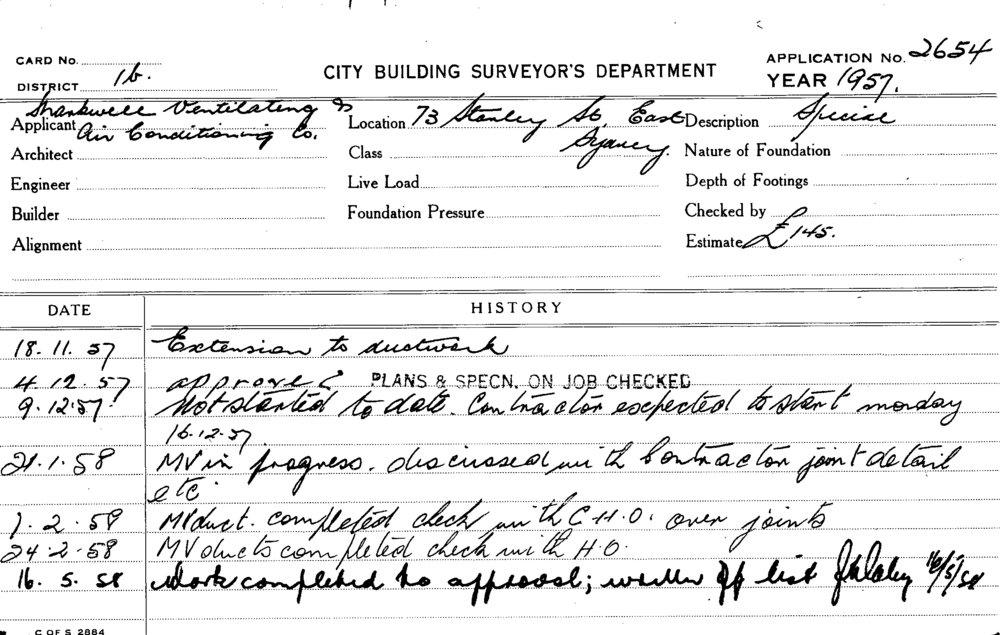 CARD No.
DISTRICT 1b.
CITY BUILDING SURVEYOR'S DEPARTMENT
APPLICATION No. 2654
YEAR 1957.
Applicant Ventilating & Air Conditioning Co.
Location 73 Stanley St. East Sydney.
Description Special
Architect
Class
Nature of Foundation
Engineer
Live Load
Depth of Footings
Builder
Foundation Pressure
Checked by
Alignment
Estimate £145.
DATE HISTORY
18.11.57 Extension to ductwork
4.12.57 approved PLANS & SPECN. ON JOB CHECKED
9.12.57. Not started to date. Contractor expected to start monday
16.12.57.
21.1.58 MV in progress. discussed with Contractor joint detail
etc.
7.2.58 MV duct. completed check with C.H.O. over joints
24.2.58 MV ducts completed check with H.O.
16.5.58 Work completed to approval; written off list 16/5/58
C OF S 2884